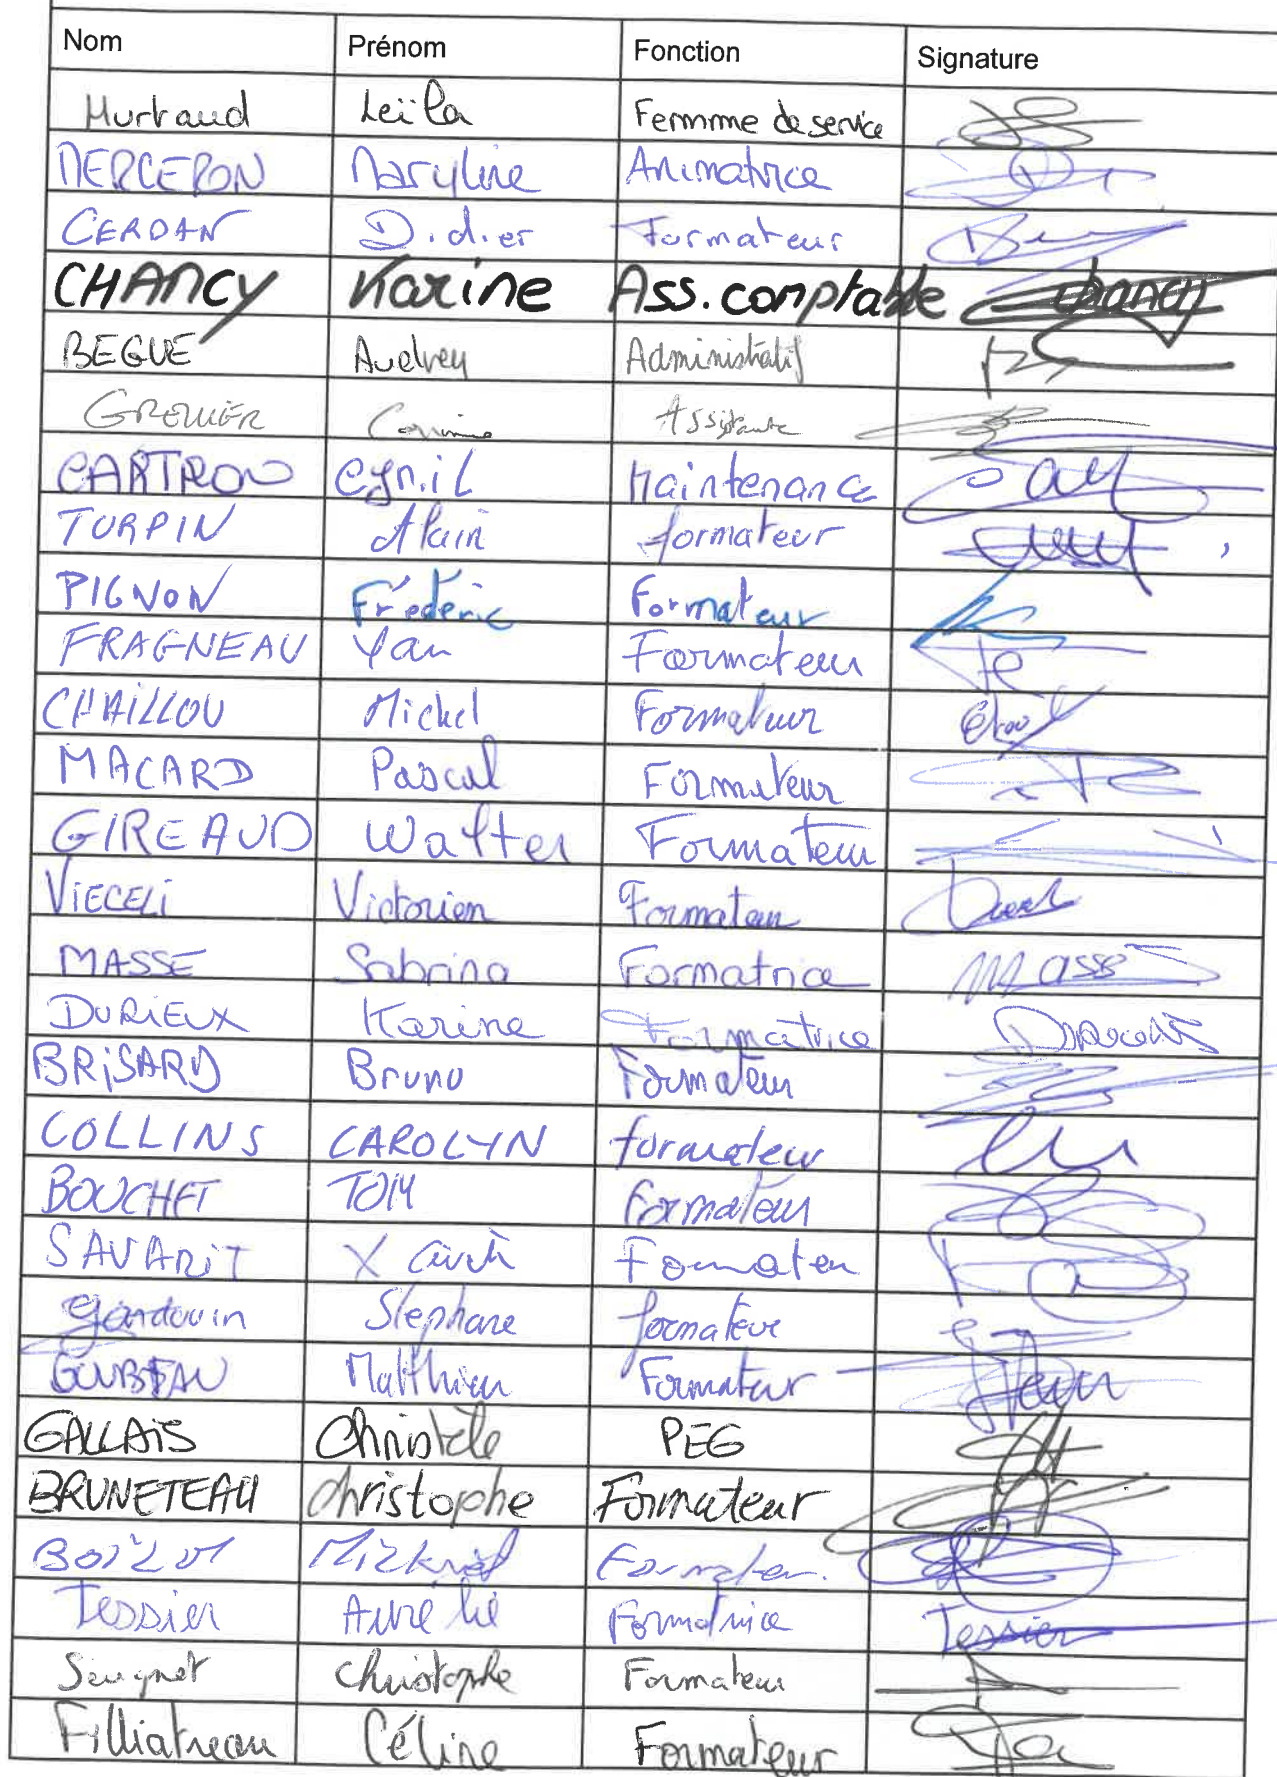 Nom Prénom Fonction Signature
Hurtaud Leïla Femmme de service
MERCERON Maryline Animatrice
CERDAN Didier Formateur
CHANCY Karine Ass. comptable chancy
BEGUE Audrey Administratif
GRENIER Corinne Assistante
CARTRON Cyril Maintenance
TURPIN Alain formateur
PIGNON Fréderic Formateur
FRAGNEAU Yan Formateur
CHAILLOU Michel Formateur
MACARD Pascal Formateur
GIREAUD Walter Formateur
ViECELi Victorien Formateur
MASSE Sabrina Formatrice Masse
DURiEUX Karine Formatrice
BRiSARD Bruno Formateur
COLLINS CAROLYN formateur
BOUCHET TOM formateur
SAVARiT Xavier Formateur
Gardouin Stéphane formateur
GOUBEAU Matthieu Formateur
GALLAiS Christèle PEG
BRUNETEAU christophe Formateur
Mickaël Formateur
Tessier Aurélie Formatrice Tessier
Seugnet Christophe Formateur
Filliatreau Céline Formateur